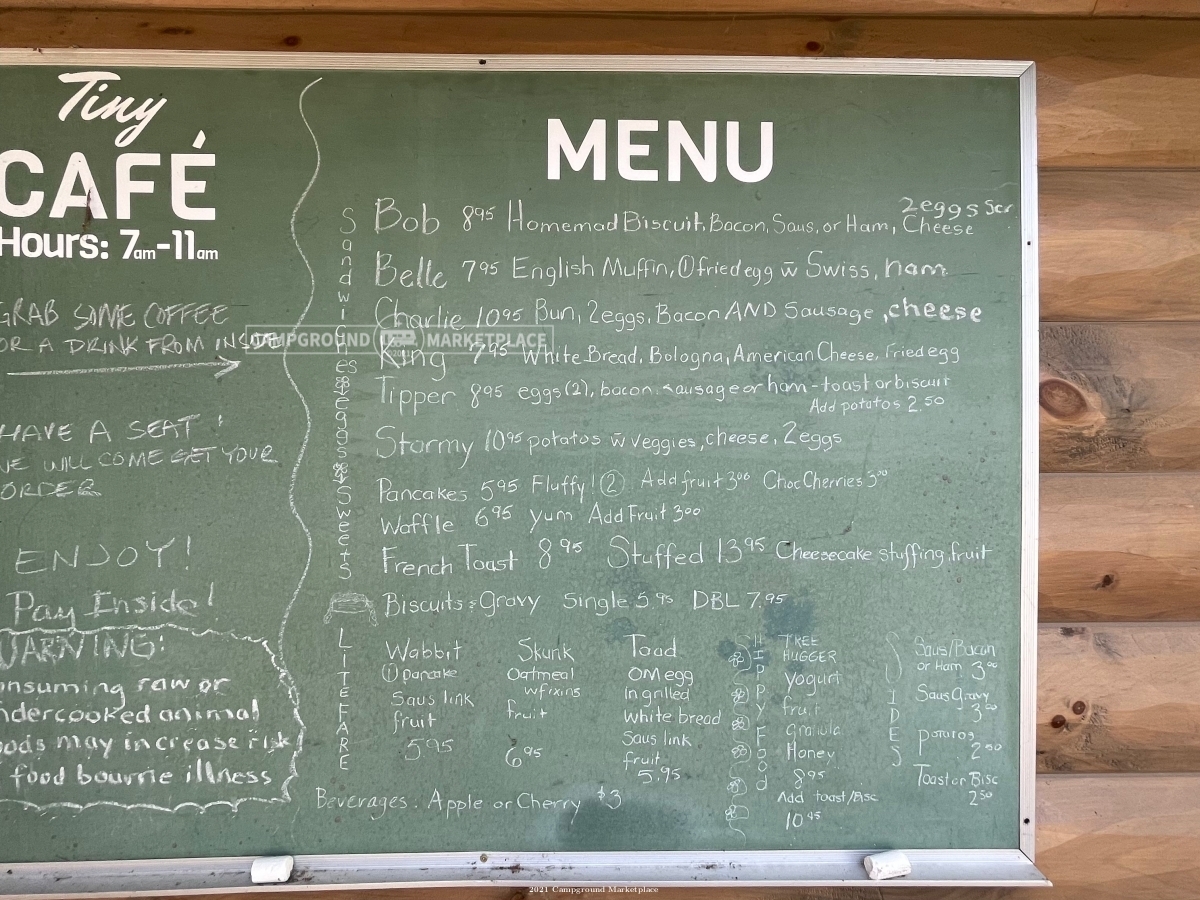 Tiny
CAFÉ
Hours: 7am-11am
GRAB SOME COFFEE
OR A DRINK FROM INSIDE
HAVE A SEAT!
WE WILL COME GET YOUR
ORDER
ENJOY!
Pay Inside!
WARNING:
onsuming raw or
ndercooked animal
oods may increase risk
food bourne illness
MENU
Sandwiches & eggs & Sweets
2eggs Scr
Bob 8.95 Homemad Biscuit, Bacon, Saus, or Ham, Cheese
Belle 7.95 English Muffin, ① fried egg w̄ Swiss, ham
Charlie 10.95 Bun, 2eggs, Bacon AND Sausage, cheese
King 7.95 White Bread, Bologna, American Cheese, fried egg
Tipper 8.95 eggs(2), bacon, sausage or ham - toast or biscuit
Add potatos 2.50
Stormy 10.95 potatos w̄ veggies, cheese, 2eggs
Pancakes 5.95 Fluffy! ② Add fruit 3.00 Choc Cherries 3.00
Waffle 6.95 yum Add Fruit 3.00
French Toast 8.95 Stuffed 13.95 Cheesecake stuffing, fruit
Biscuits & Gravy Single 5.95 DBL 7.95
LITE FARE
Wabbit
① pancake
Saus link
fruit
5.95
Skunk
Oatmeal
w fixins
fruit
6.95
Toad
OM egg
in grilled
white bread
Saus link
fruit
5.95
HIPPY Food
TREE
HUGGER
yogurt
fruit
granola
Honey
8.95
Add toast/Bisc
10.45
SIDES
Saus/Bacon
or Ham 3.00
Saus Gravy
3.00
potatos
2.50
Toast or Bisc
2.50
Beverages: Apple or Cherry $3
CAMPGROUND MARKETPLACE
2021 Campground Marketplace